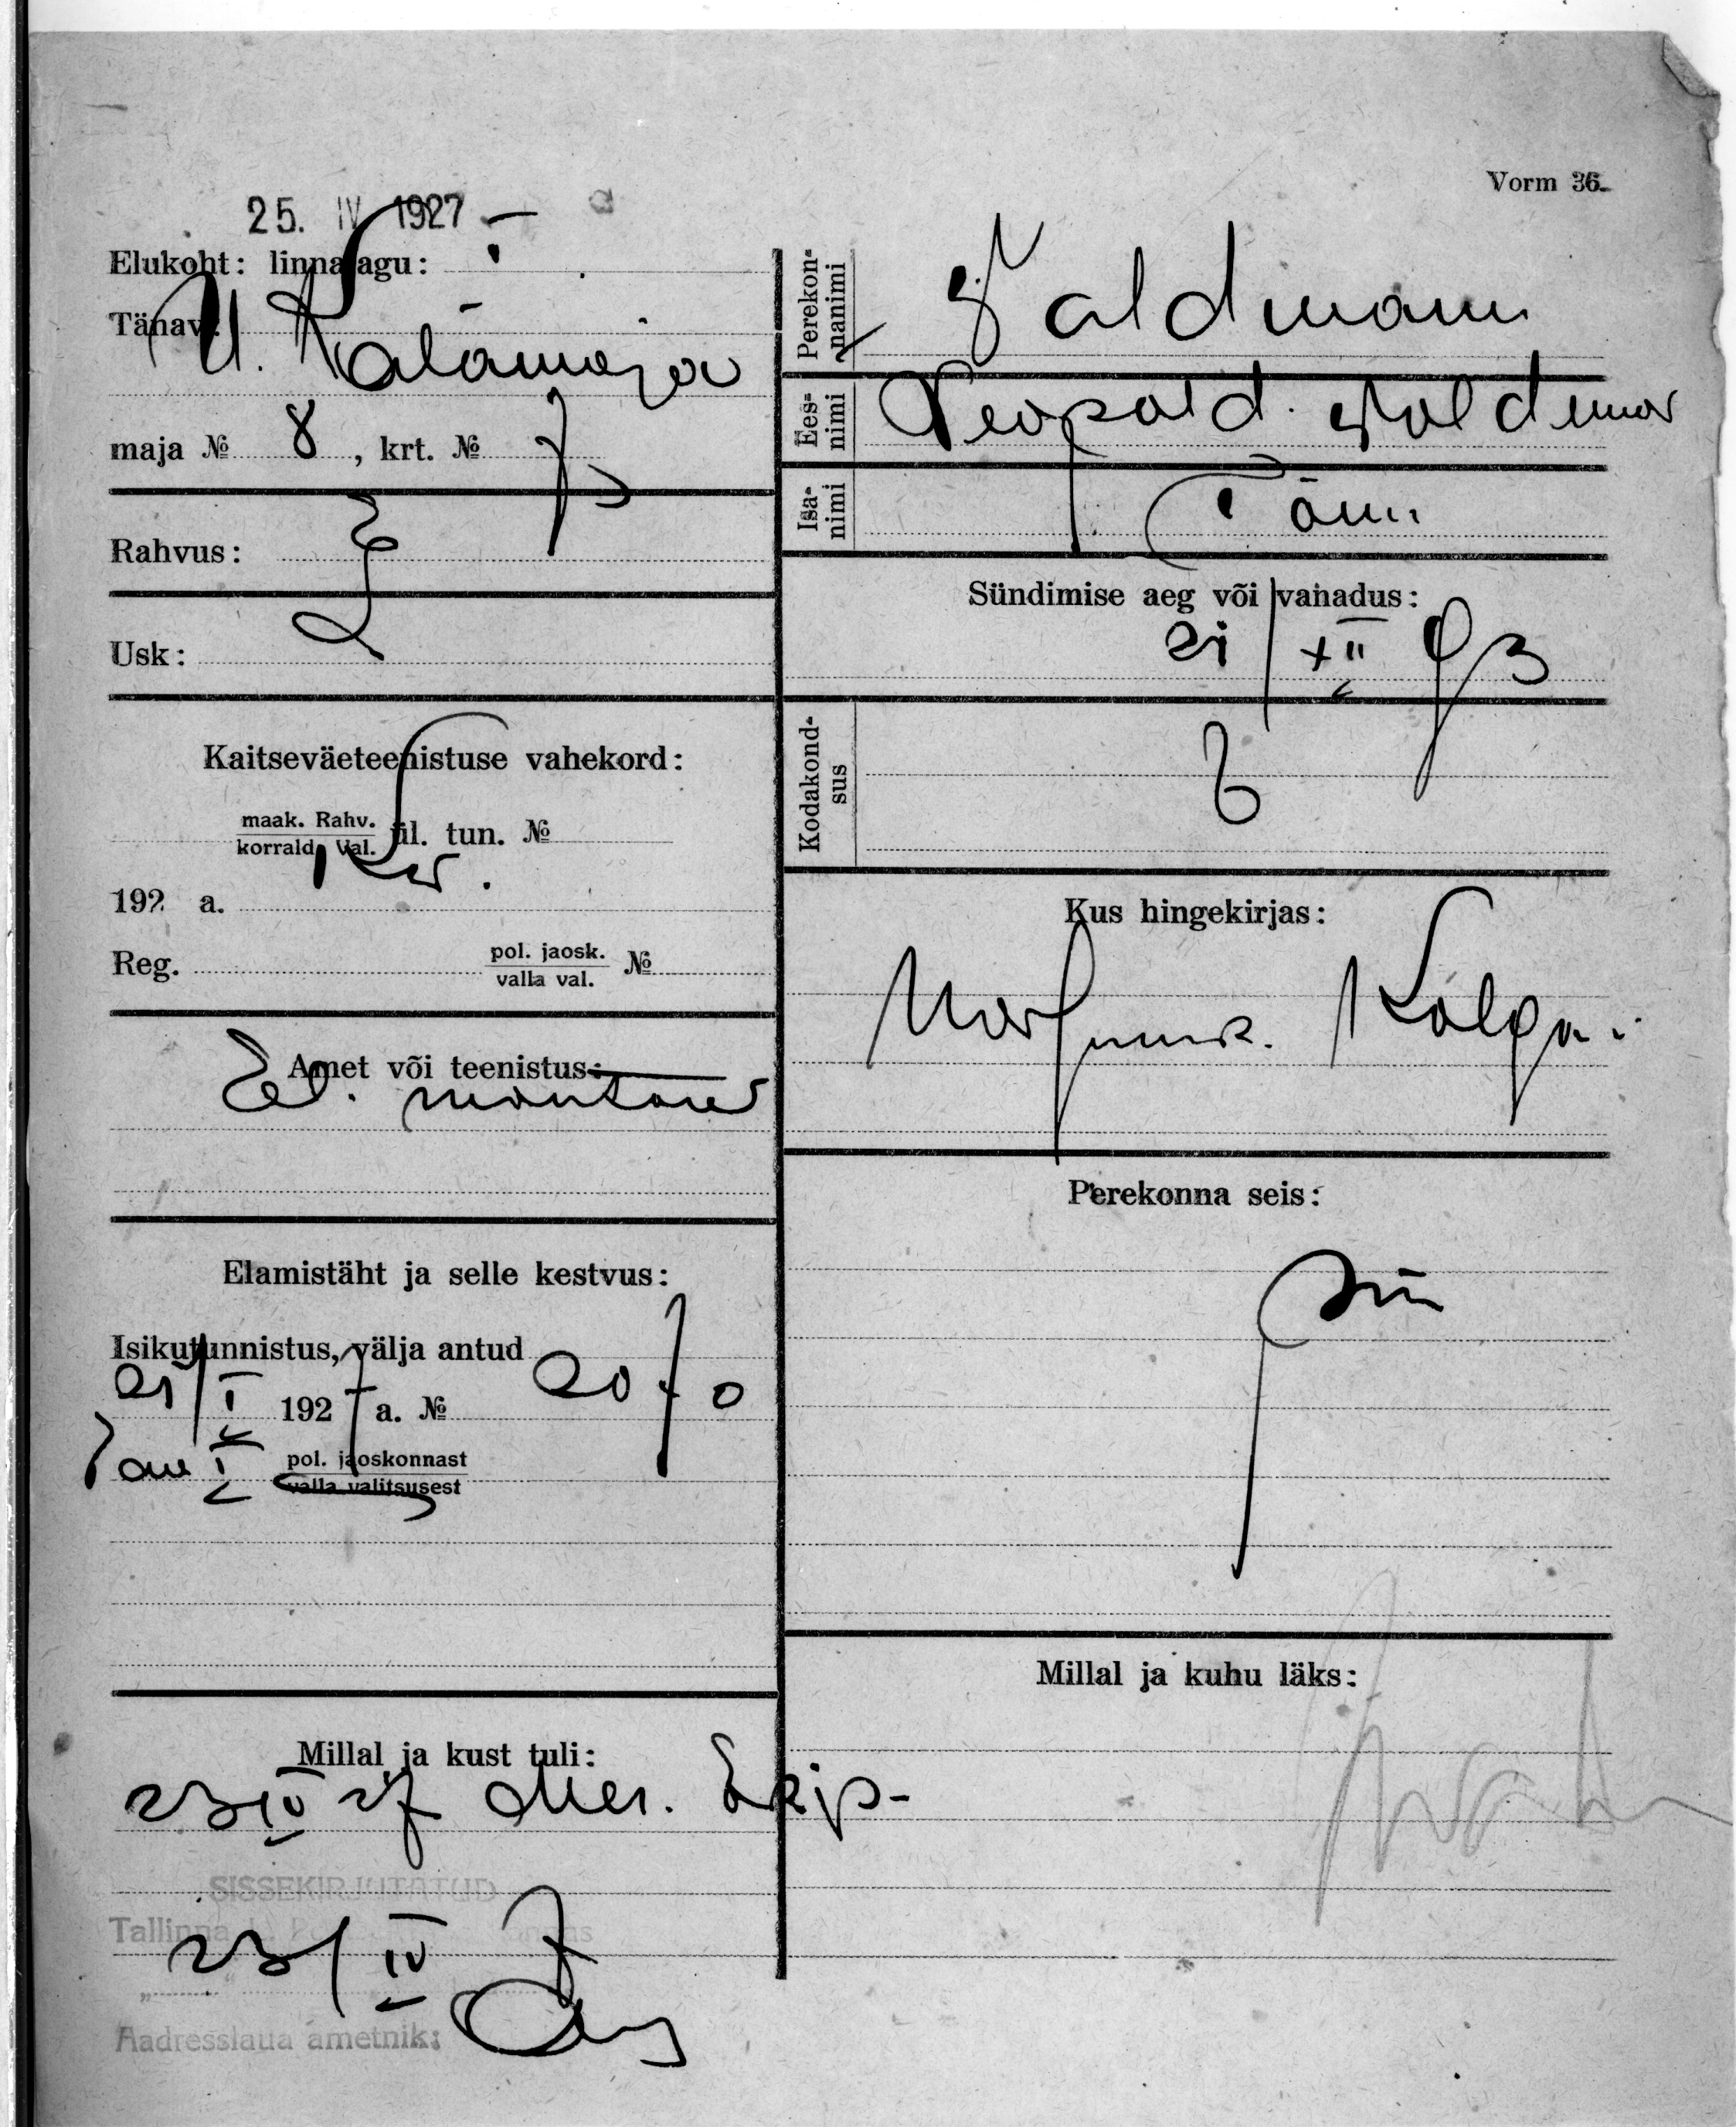 Vorm 36.
25. IV 1927
Elukoht: linnajagu: I
Tänav: U. Kalamaja
maja № 8, krt. № 7
Rahvus: E
Usk: L
Kaitseväeteenistuse vahekord:
maak. Rahv.
korrald. Val. ül. tun. №
192 a.
Reg. pol. jaosk.
valla val. №
Amet või teenistus:
El. montöör
Elamistäht ja selle kestvus:
Isikutunnistus, välja antud
21/I 1927 a. № 2070
Tall. I pol. jaoskonnast
valla valitsusest
Millal ja kust tuli:
23 IV 27 Mer. Ekip.
SISSEKIRJUTATUD
Tallinna
23/IV 7
Aadresslaua ametnik:
Perekonnanimi
Valdmann
Eesnimi
Leopold Voldemar
Isanimi
Tõnu
Sündimise aeg või vanadus:
21/XII 93
Kodakondsus
E
Kus hingekirjas:
Kolga
Perekonna seis:
Millal ja kuhu läks: